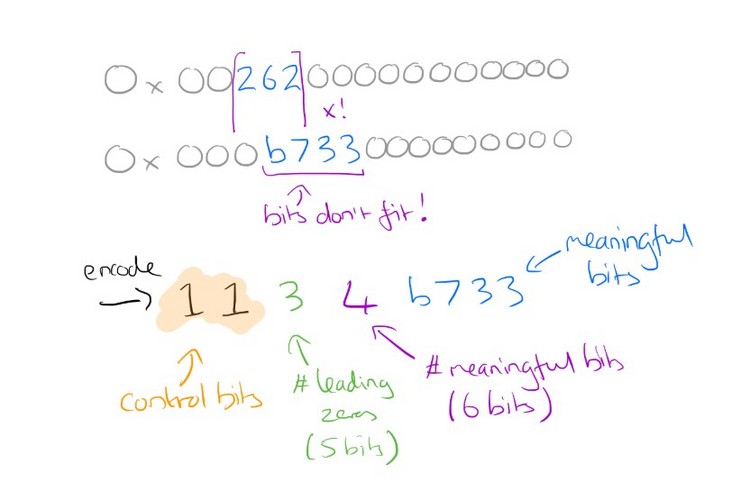 0x0026200000000000
x!
0x000b733000000000
bits don't fit!
encode
11 3 4 b733
meaningful
bits
control bits
# leading
zeros
(5 bits)
# meaningful bits
(6 bits)